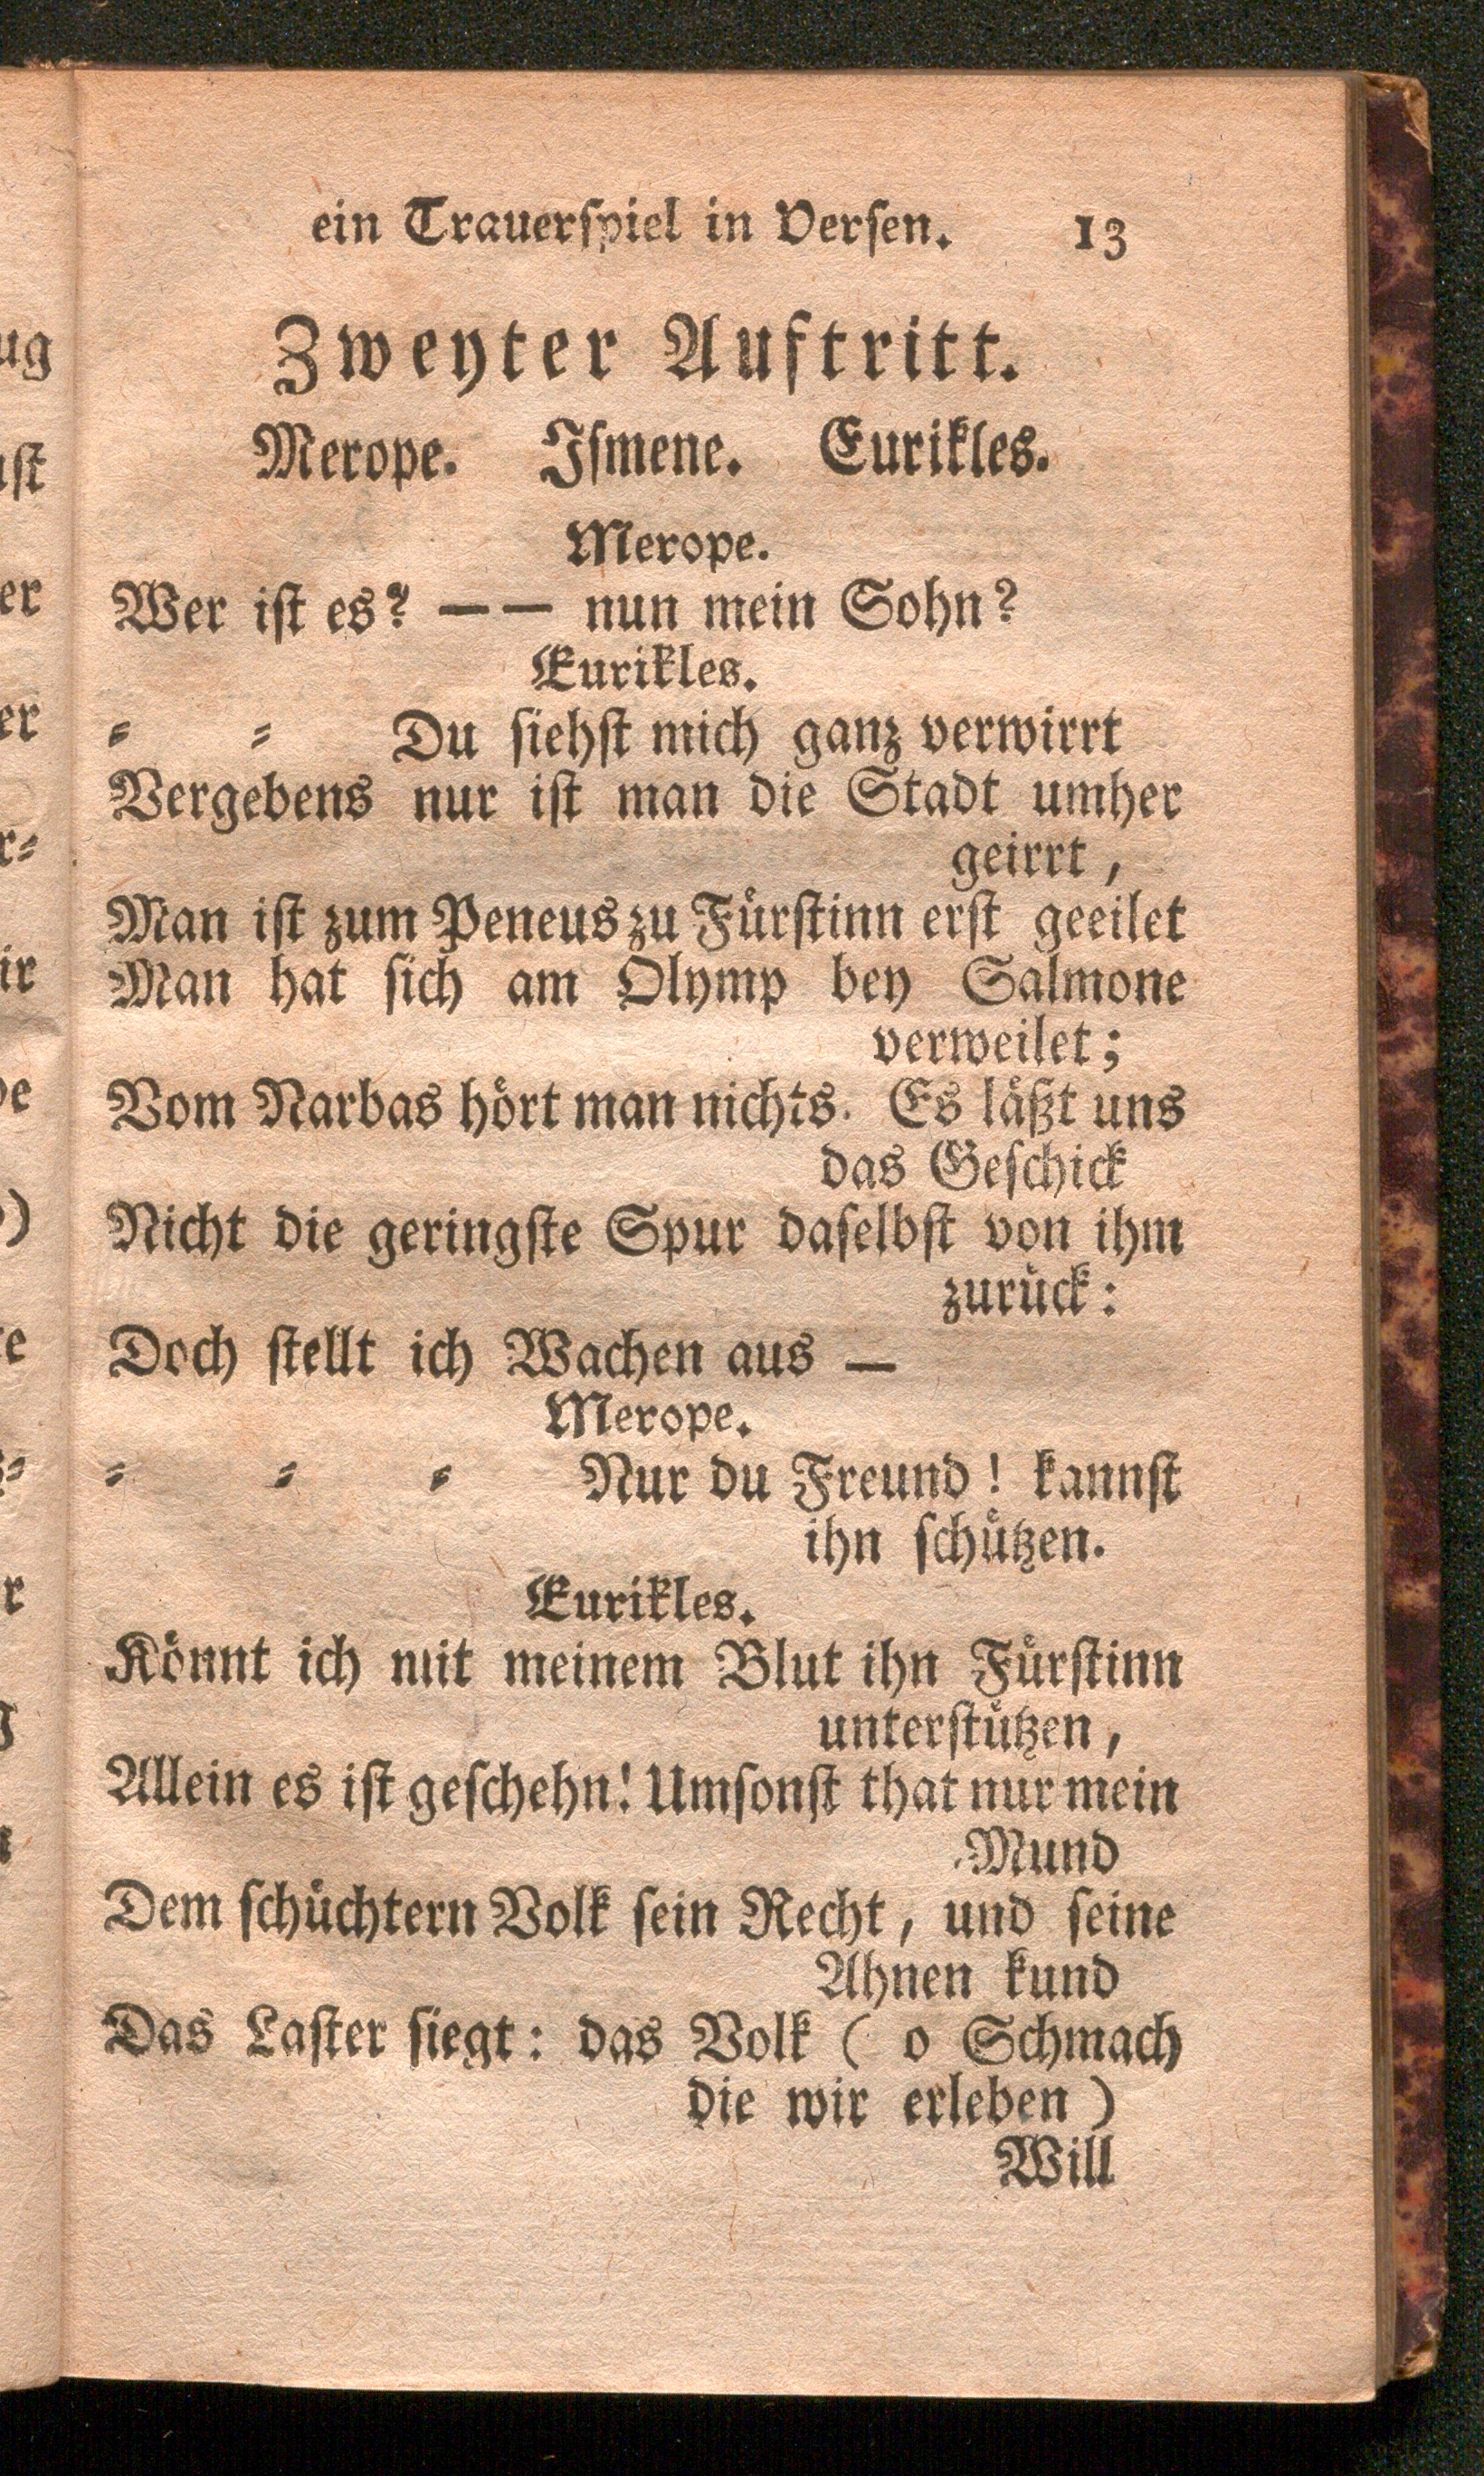 ein Trauerſpiel in Verſen. 13
Zweyter Auftritt.
Merope. Iſmene. Eurikles.
Merope.
Wer iſt es? — — nun mein Sohn?
Eurikles.
⸗ ⸗ Du ſiehſt mich ganz verwirrt
Vergebens nur iſt man die Stadt umher
geirrt,
Man iſt zum Peneus zu Fürſtinn erſt geeilet
Man hat ſich am Olymp bey Salmone
verweilet;
Vom Narbas hört man nichts. Es läßt uns
das Geſchick
Nicht die geringſte Spur daſelbſt von ihm
zurück:
Doch ſtellt ich Wachen aus —
Merope.
⸗ ⸗ ⸗ Nur du Freund! kannſt
ihn ſchützen.
Eurikles.
Könnt ich mit meinem Blut ihn Fürſtinn
unterſtützen,
Allein es iſt geſchehn! Umſonſt that nur mein
Mund
Dem ſchüchtern Volk ſein Recht, und ſeine
Ahnen kund
Das Laſter ſiegt: das Volk ( o Schmach
die wir erleben )
Will